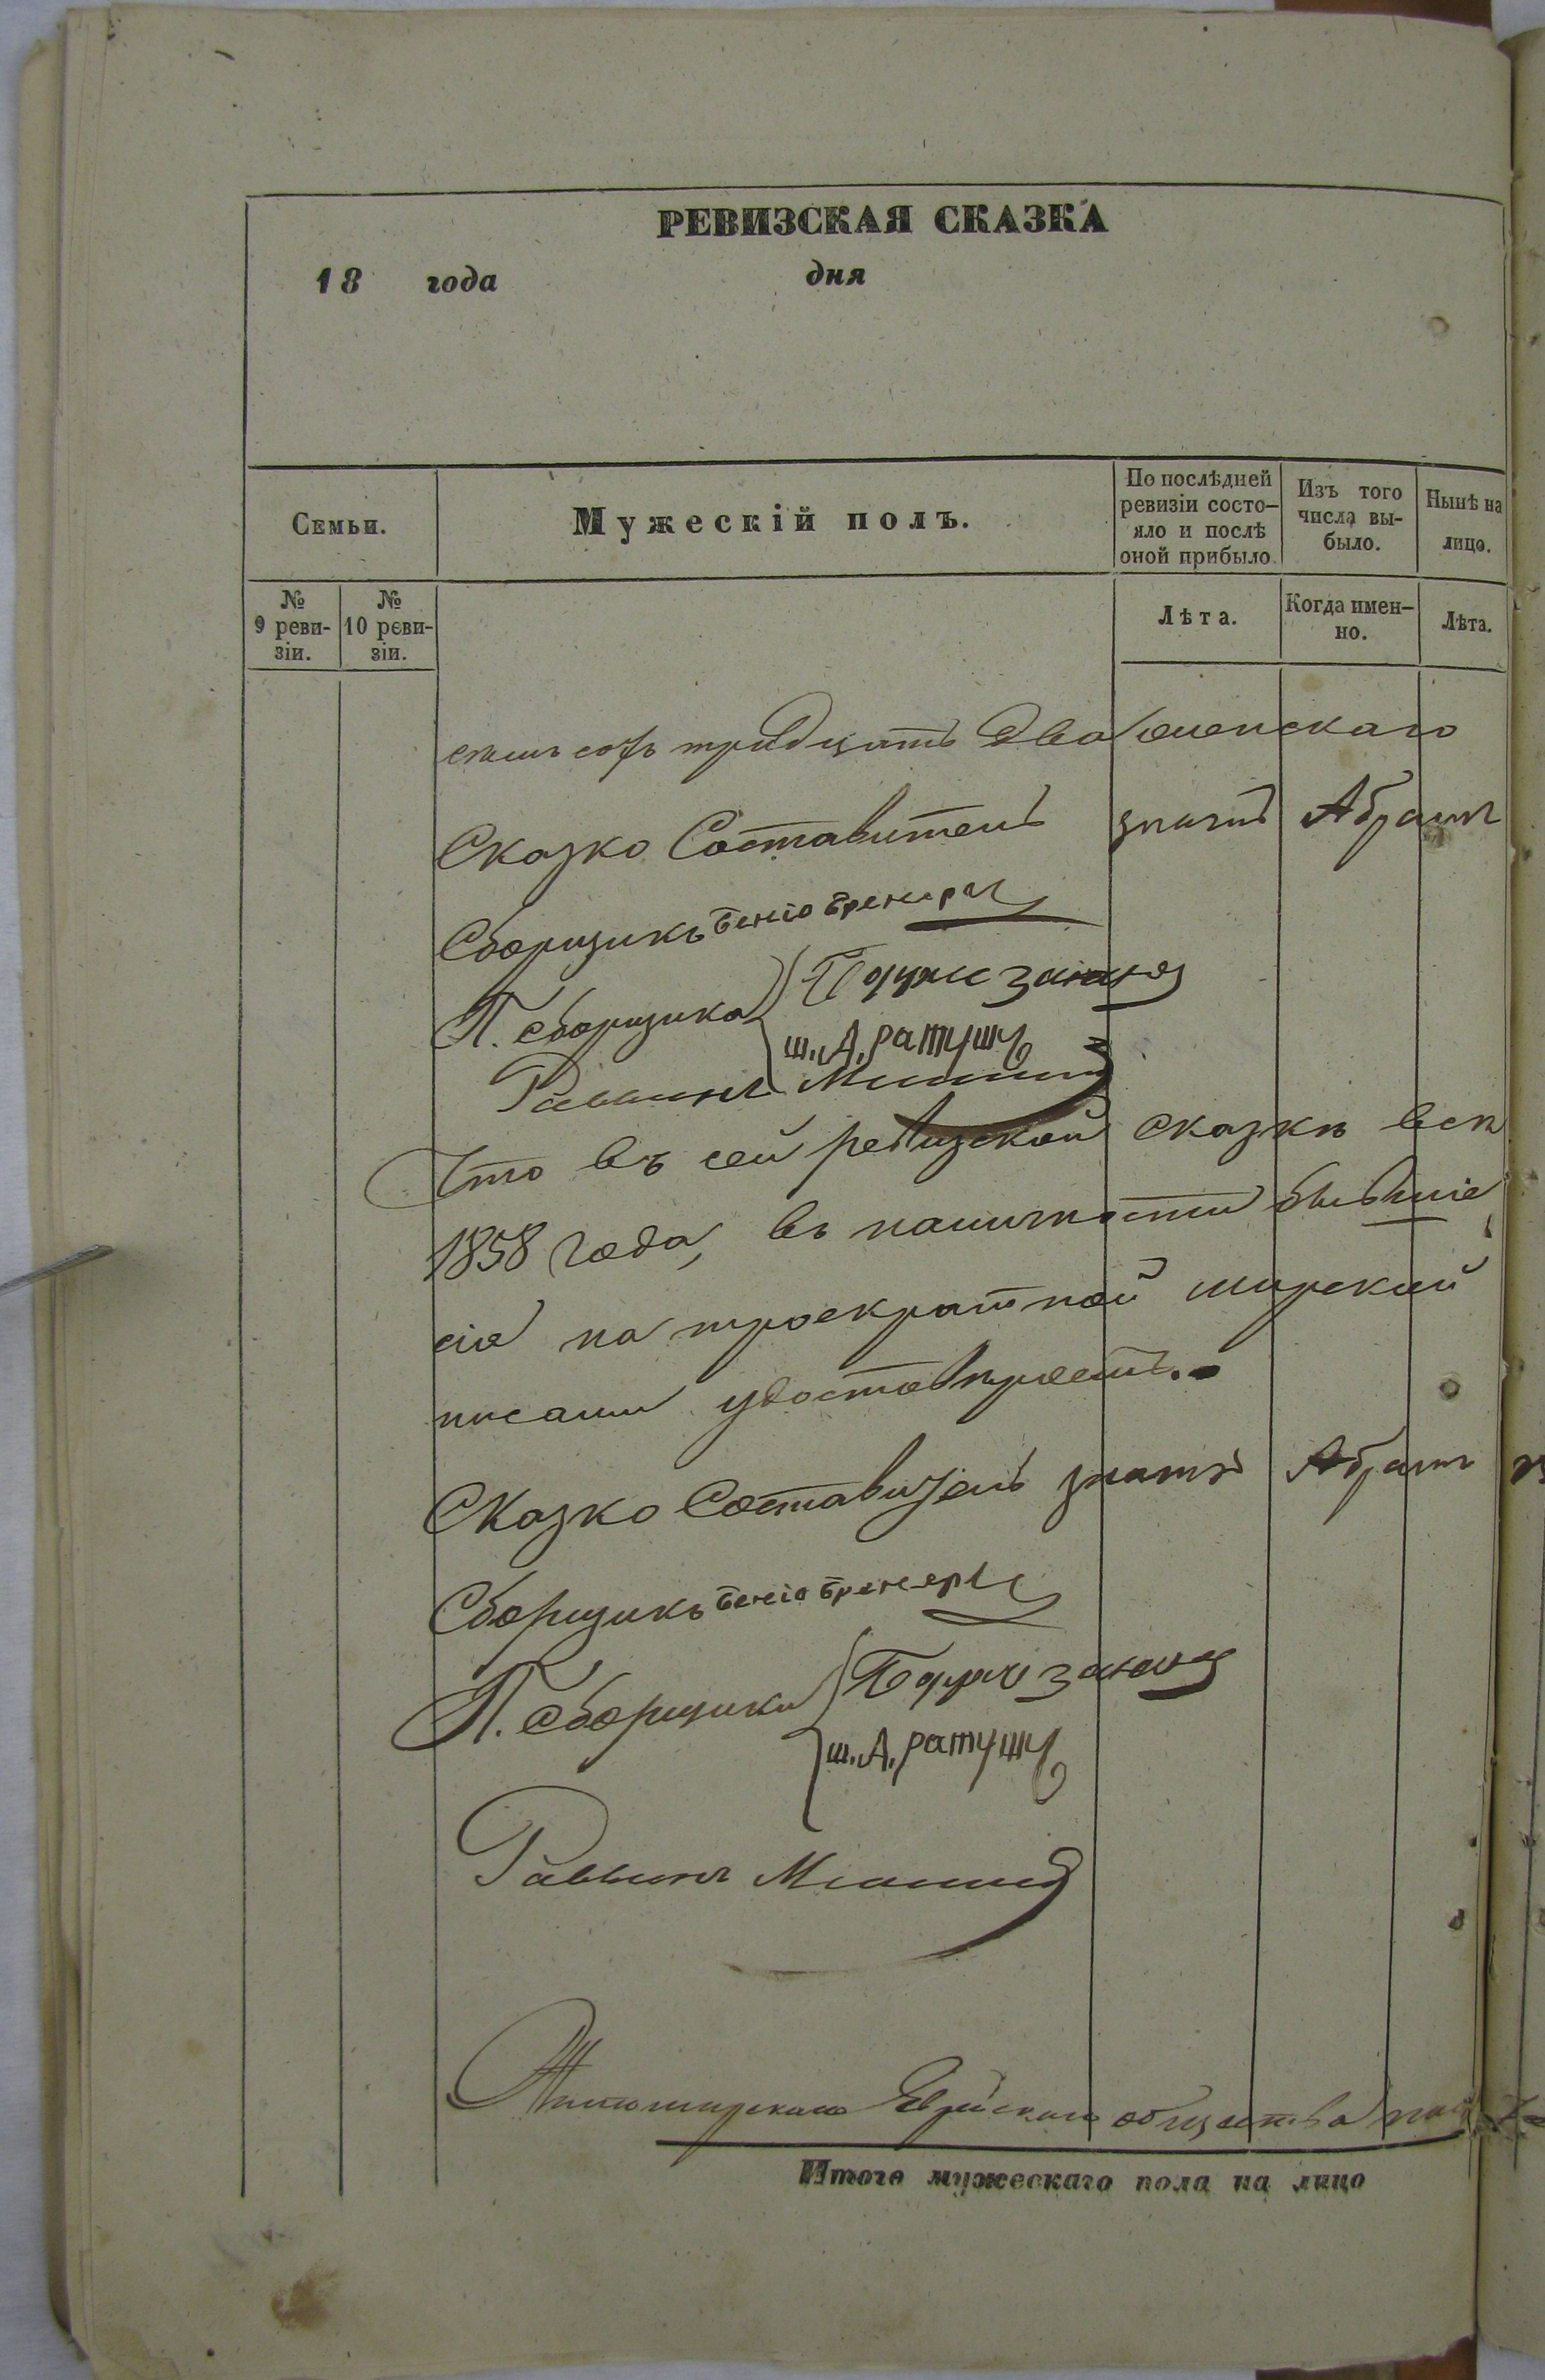 РЕВИЗСКАЯ СКАЗКА
18 года дня
Семьи.
Мужескій полъ.
По послѣдней ревизіи состо-
яло и послѣ
оной прибыло.
Изъ того
числа вы-
было.
Нынѣ на
лицо.
№
9 реви-
зіи.
№
10 реви-
зіи.
Лѣта.
Когда имен-
но.
Лѣта.
сотъ тридцать два женскаго
Сказко Составитель Абрамъ
Сборщикъ
П. сборщика
ш. А. ратушу
Раввинъ
Что въ сей ревизской сказкѣ всѣ
1858 года, въ наличности бывшіе
сіе на троекратной мирской
писами удостовѣряемъ.
Сказко Составитель Абрамъ
Сборщикъ
П. сборщики
ш. А. ратушу
Раввинъ
Житомирскаго Еврейскаго общества
Итого мужескаго пола на лицо